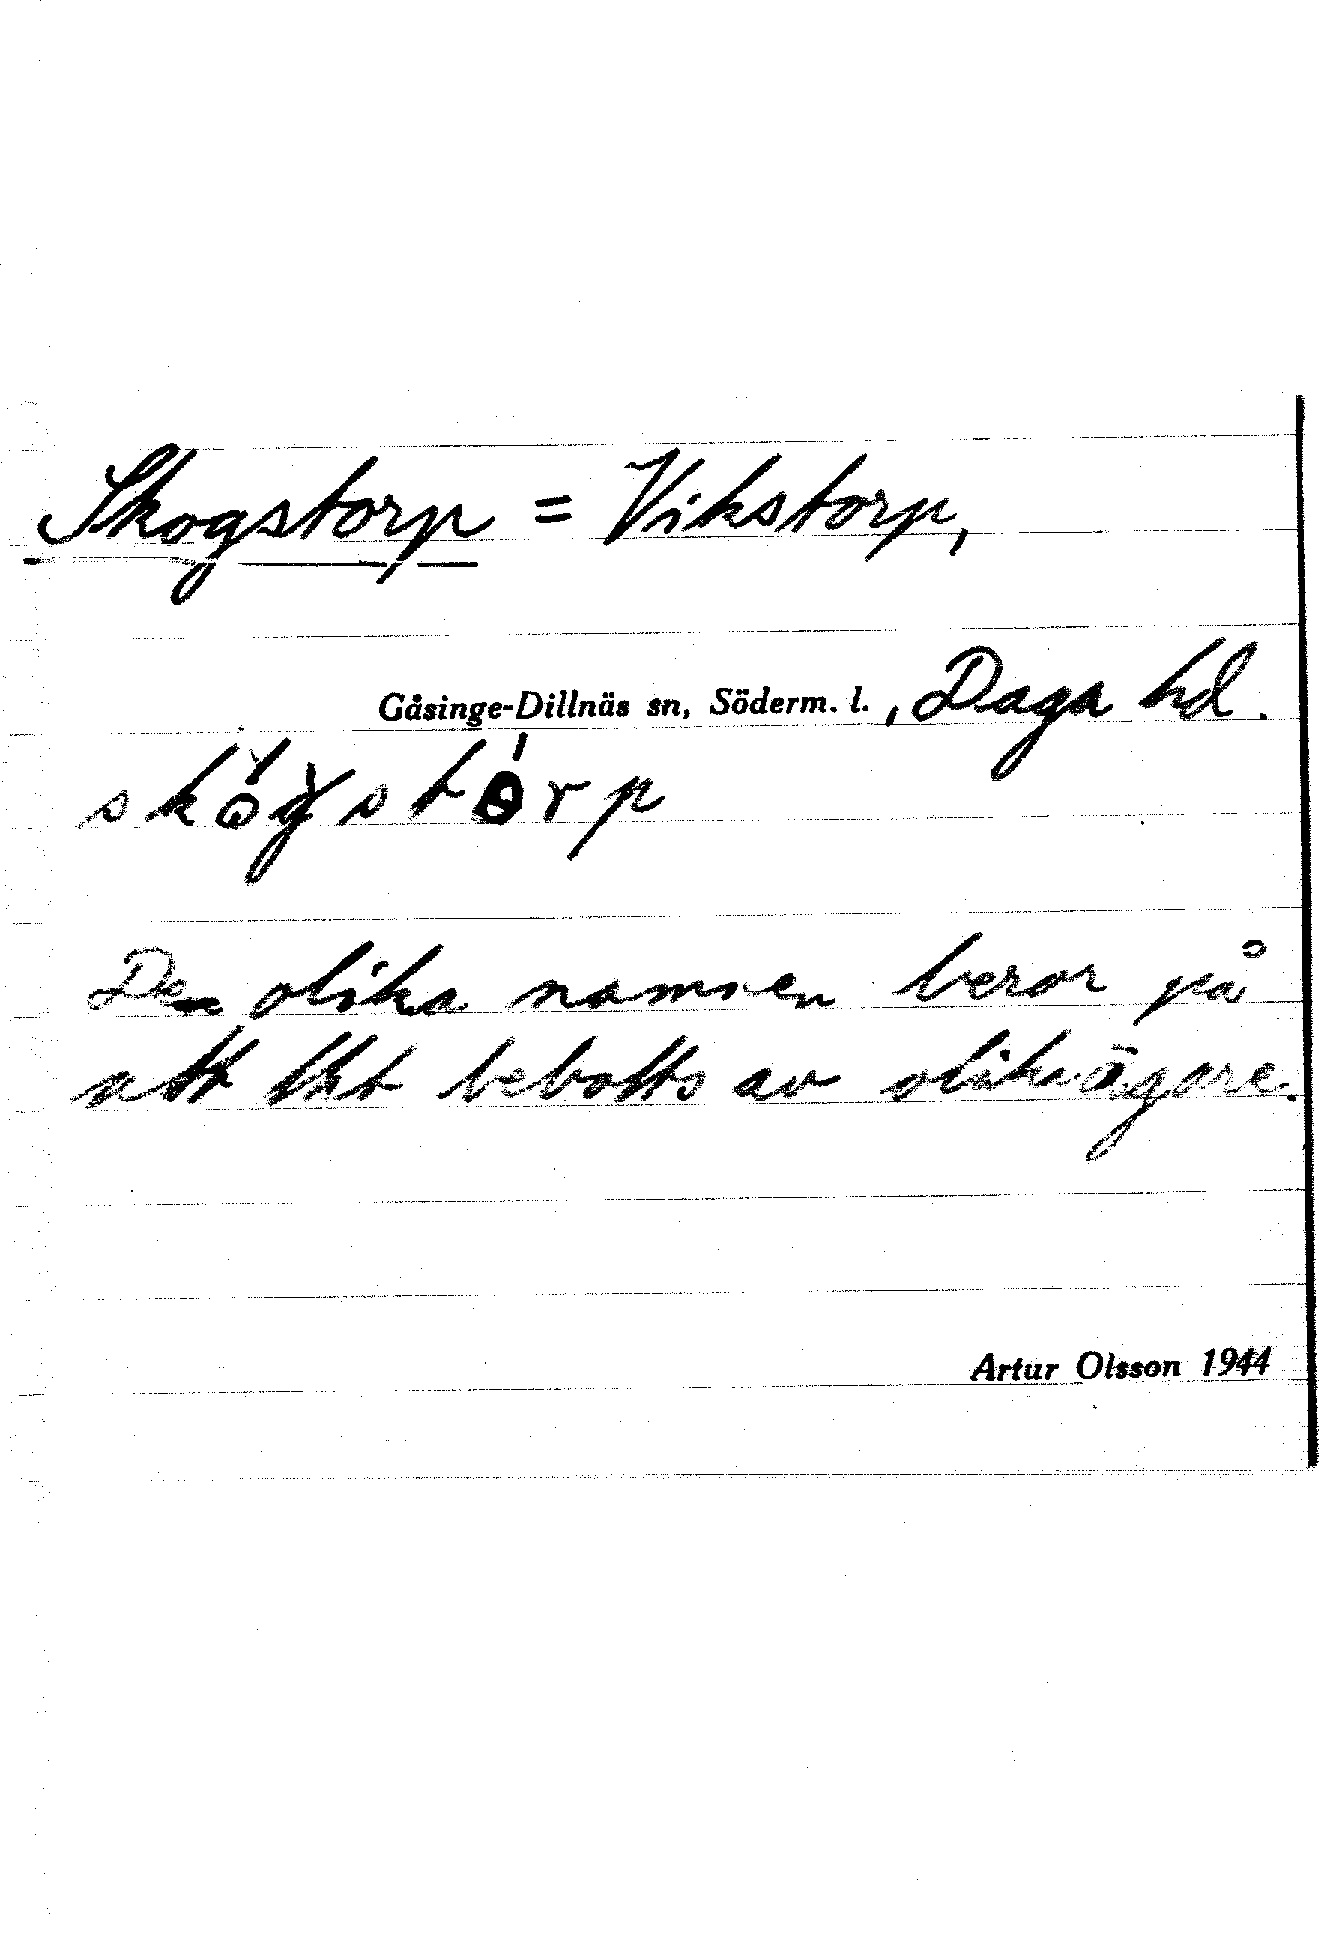 Skogstorp = Vikstorp,
Gåsinge-Dillnäs sn, Söderm. l., Daga hd.
skógstórp
De olika namnen beror på
att tht bebotts av olika ägare.
Artur Olsson 1944